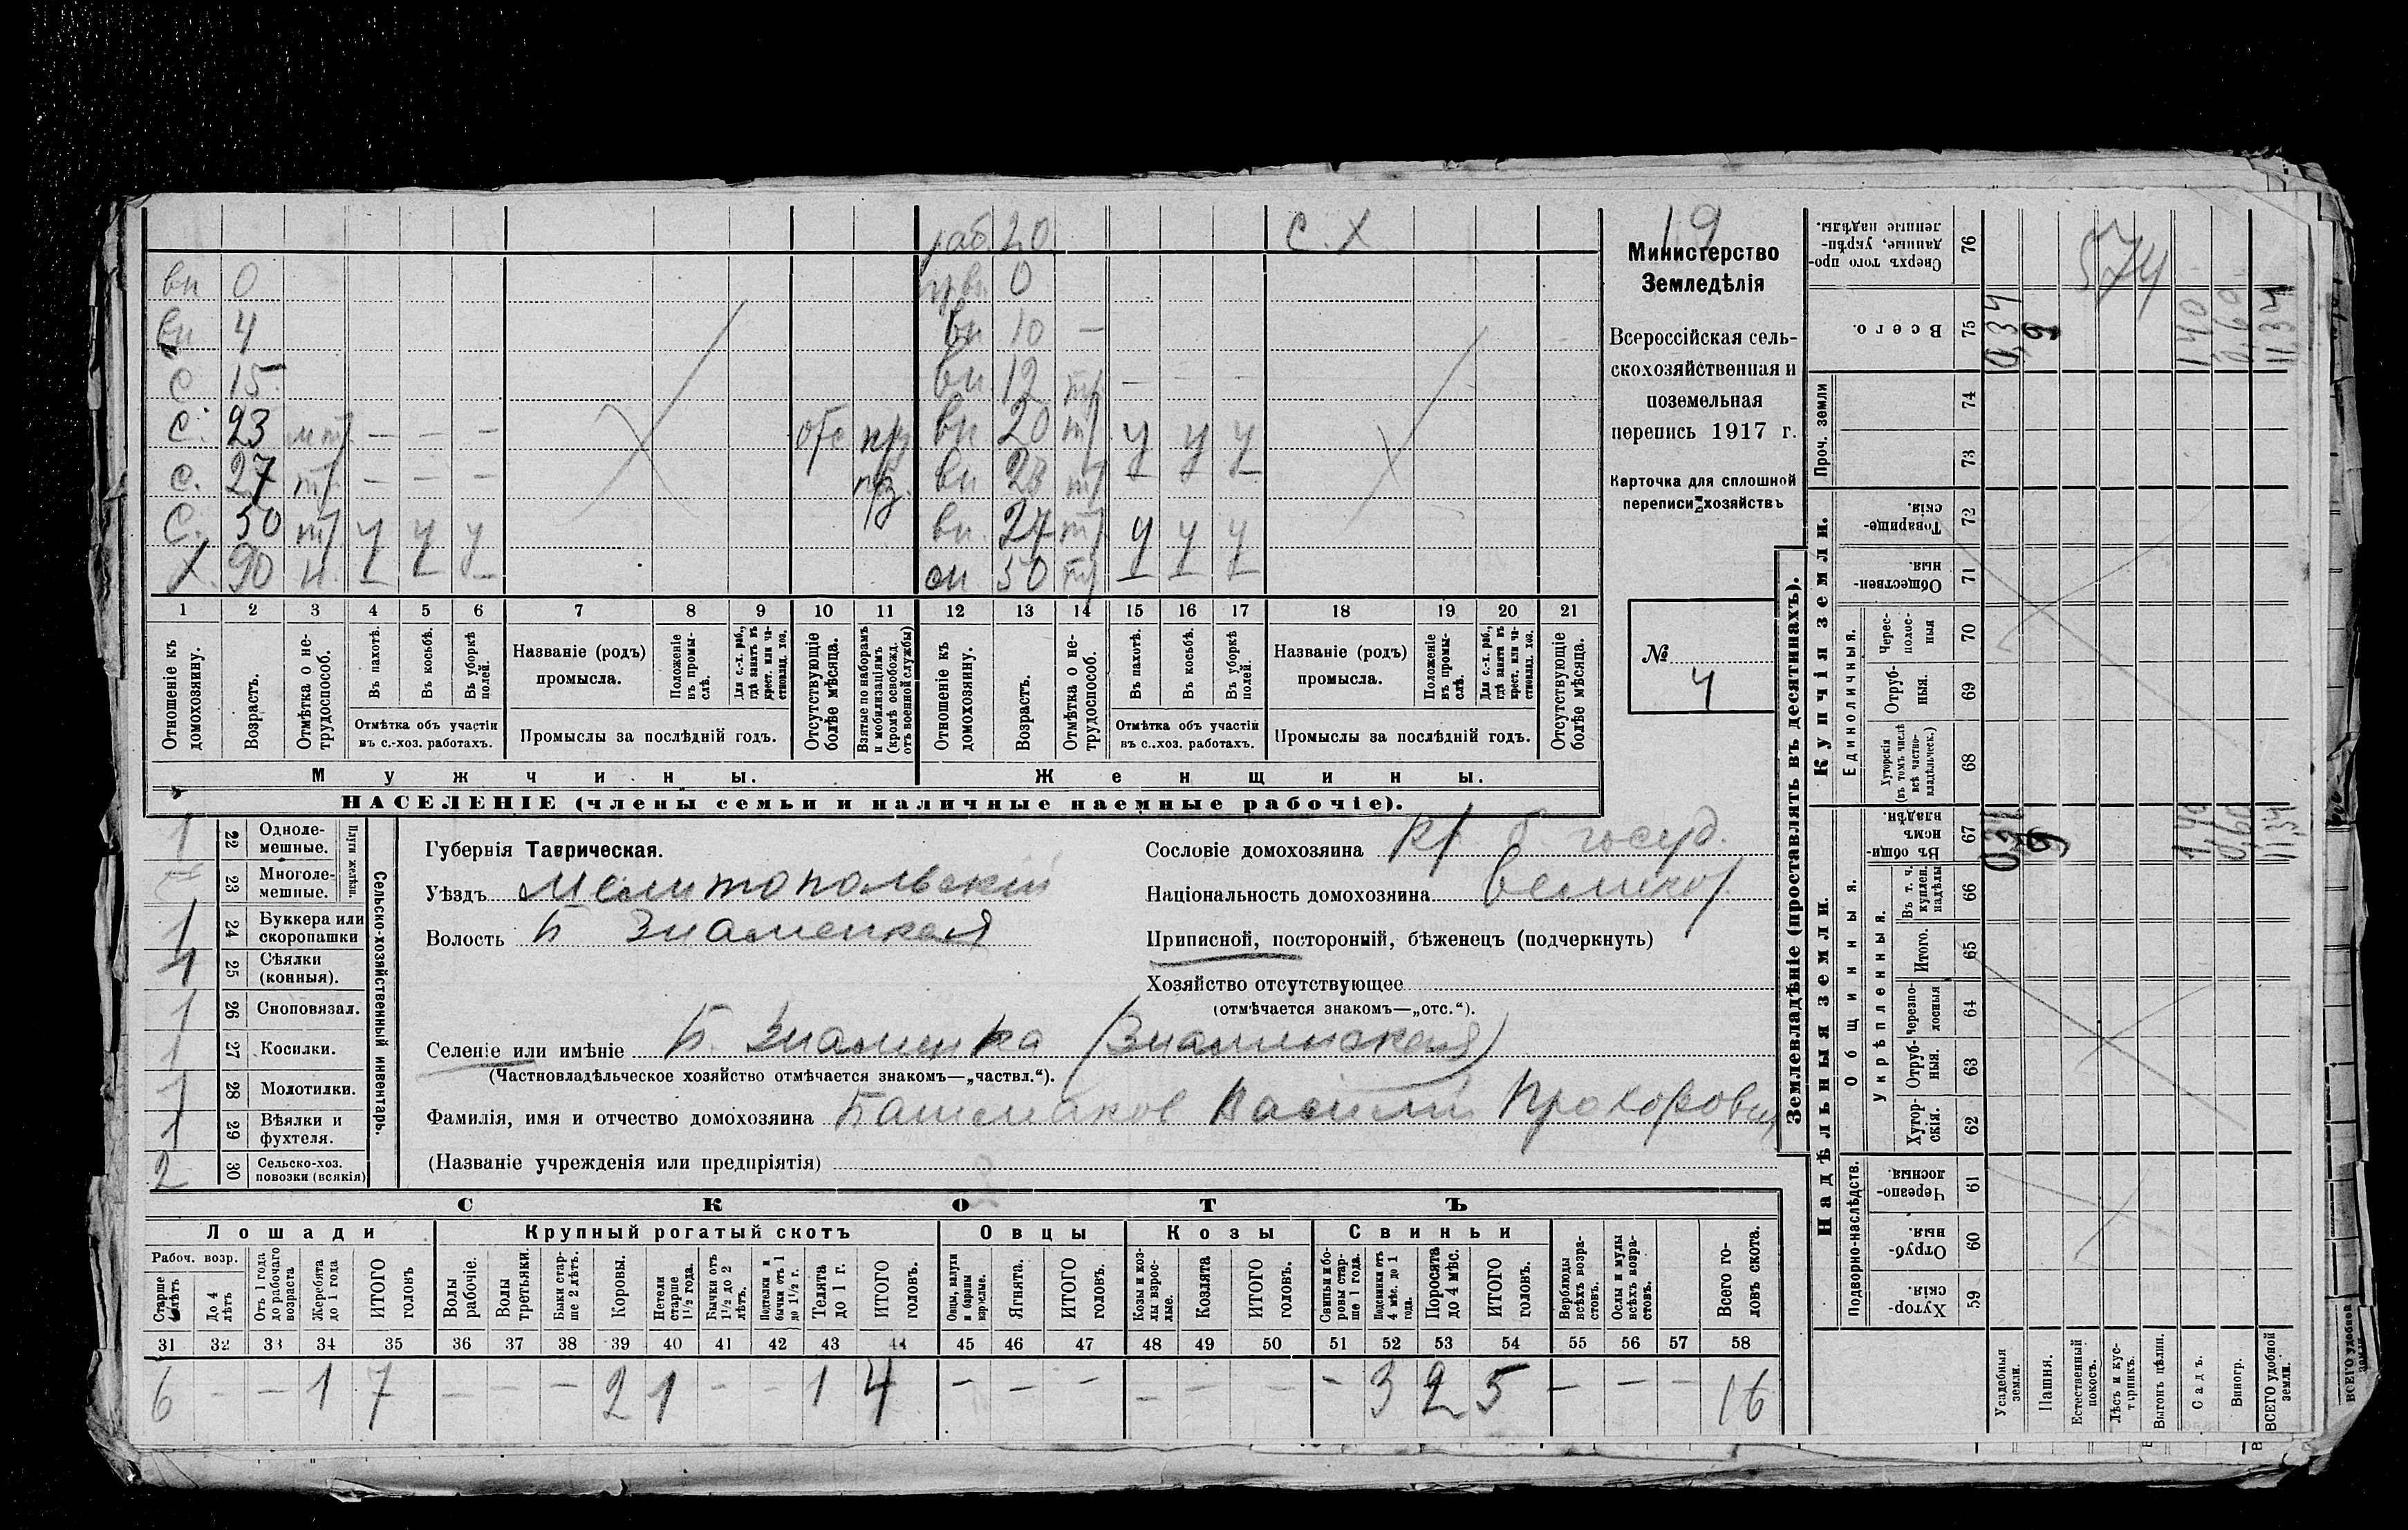 раб. 20 С. Х 19
вн 0 0
вн 4 вн 10 —
С 15 вн. 12 —
С. 23 — — — отс вн 20 у у у
С. 27 — — — вн 23
С. 50 у у у вн. 27 у у у
Х. 90 н. — — — 50 — — —
1 2 3 4 5 6 7 8 9 10 11 12 13 14 15 16 17 18 19 20 21
Отношеніе къ домохозяину.
Возрастъ.
Отмѣтка о нетрудоспособ.
Въ пахотѣ.
Въ косьбѣ.
Въ уборкѣ полей.
Отмѣтка объ участіи
въ с.-хоз. работахъ.
Названіе (родъ)
промысла.
Положеніе въ промыслѣ.
Для с.-х. раб., гдѣ занятъ въ крест. или частновлад. хоз.
Промыслы за послѣдній годъ.
Отсутствующіе болѣе мѣсяца.
Взятые по наборамъ и мобилизаціямъ (кромѣ освобожд. отъ военной службы)
Отношеніе къ домохозяину.
Возрастъ.
Отмѣтка о нетрудоспособ.
Въ пахотѣ.
Въ косьбѣ.
Въ уборкѣ полей.
Отмѣтка объ участіи
въ с.-хоз. работахъ.
Названіе (родъ)
промысла.
Положеніе въ промыслѣ.
Для с.-х. раб., гдѣ занята въ крест. или частновлад. хоз.
Промыслы за послѣдній годъ.
Отсутствующіе болѣе мѣсяца.
Мужчины. Женщины.
НАСЕЛЕНІЕ (члены семьи и наличные наемные рабочіе).
Министерство
Земледѣлія
Всероссійская сель-
скохозяйственная и
поземельная
перепись 1917 г.
Карточка для сплошной
переписи хозяйствъ
№
4
1 22 Одноле-
мешные.
23 Многоле-
мешные.
Плуги желѣзн.
1 24 Буккера или
скоропашки
1 25 Сѣялки
(конныя).
1 26 Сноповязал.
1 27 Косилки.
1 28 Молотилки.
1 29 Вѣялки и
фухтеля.
2 30 Сельско-хоз.
повозки (всякія)
Сельско-хозяйственный инвентарь.
Губернія Таврическая.
Уѣздъ Мелитопольскій
Волость Б Знаменская
Сословіе домохозяина кр. б. госуд.
Національность домохозяина великор.
Приписной, посторонній, бѣженецъ (подчеркнуть)
Хозяйство отсутствующее
(отмѣчается знакомъ—„отс.“).
Селеніе или имѣніе Б. Знаменка (Знаменская)
(Частновладѣльческое хозяйство отмѣчается знакомъ—„частвл.“).
Фамилія, имя и отчество домохозяина Башмаков Василий Прохорович
(Названіе учрежденія или предпріятія)
СКОТЪ
Лошади Крупный рогатый скотъ Овцы Козы Свиньи
Рабоч. возр.
Старше 4 лѣтъ
До 4 лѣтъ
Отъ 1 года до рабочаго возраста
Жеребята до 1 года
ИТОГО головъ
Волы рабочіе.
Волы третьяки.
Быки старше 2 лѣтъ.
Коровы.
Нетели старше 1½ года.
Бычки отъ 1½ до 2 лѣтъ.
Подтелки и бычки отъ 1 до 1½ г.
Телята до 1 г.
ИТОГО головъ.
Овцы, валухи и бараны взрослые.
Ягнята.
ИТОГО головъ.
Козы и козлы взрослые.
Козлята
ИТОГО головъ.
Свиньи и боровы старше 1 года.
Подсвинки отъ 4 мѣс. до 1 года.
Поросята до 4 мѣс.
ИТОГО головъ.
Верблюды всѣхъ возрастовъ.
Ослы и мулы всѣхъ возрастовъ.
Всего головъ скота.
31 32 33 34 35 36 37 38 39 40 41 42 43 44 45 46 47 48 49 50 51 52 53 54 55 56 57 58
6 — — 1 7 — — — 2 1 — — 1 4 — — — — — — — 3 2 5 — — — 16
Землевладѣніе (проставлять въ десятинахъ).
Надѣльныя земли. Купчія земли. Проч. земли
Подворно-наслѣдств. Общинныя. Единоличныя.
Укрѣпленныя.
Хуторскія. 59
Отрубныя. 60
Черезполосныя 61
Хуторскія. 62
Отрубныя. 63
Черезполосныя 64
Итого. 65
Въ т. ч. куплен. надѣлы 66
Въ общинномъ владѣн. 67
Хуторскія (въ томъ числѣ всѣ частновладѣльческ.) 68
Отрубныя. 69
Чересполосныя 70
Общественныя. 71
Товарищескія. 72
73
74
Всего. 75
Сверхъ того проданные, укрѣпленные надѣлы. 76
Усадебныя земли. 0,34 0,34
Пашня. 9 9
Естественный покосъ.
Лѣсъ и кустарникъ.
Выгонъ цѣлин.
Садъ. 1,40 1,40
Виногр. 0,60 0,60
ВСЕГО удобной земли. 11,34 11,34
574
ВСЕГО удобной земли